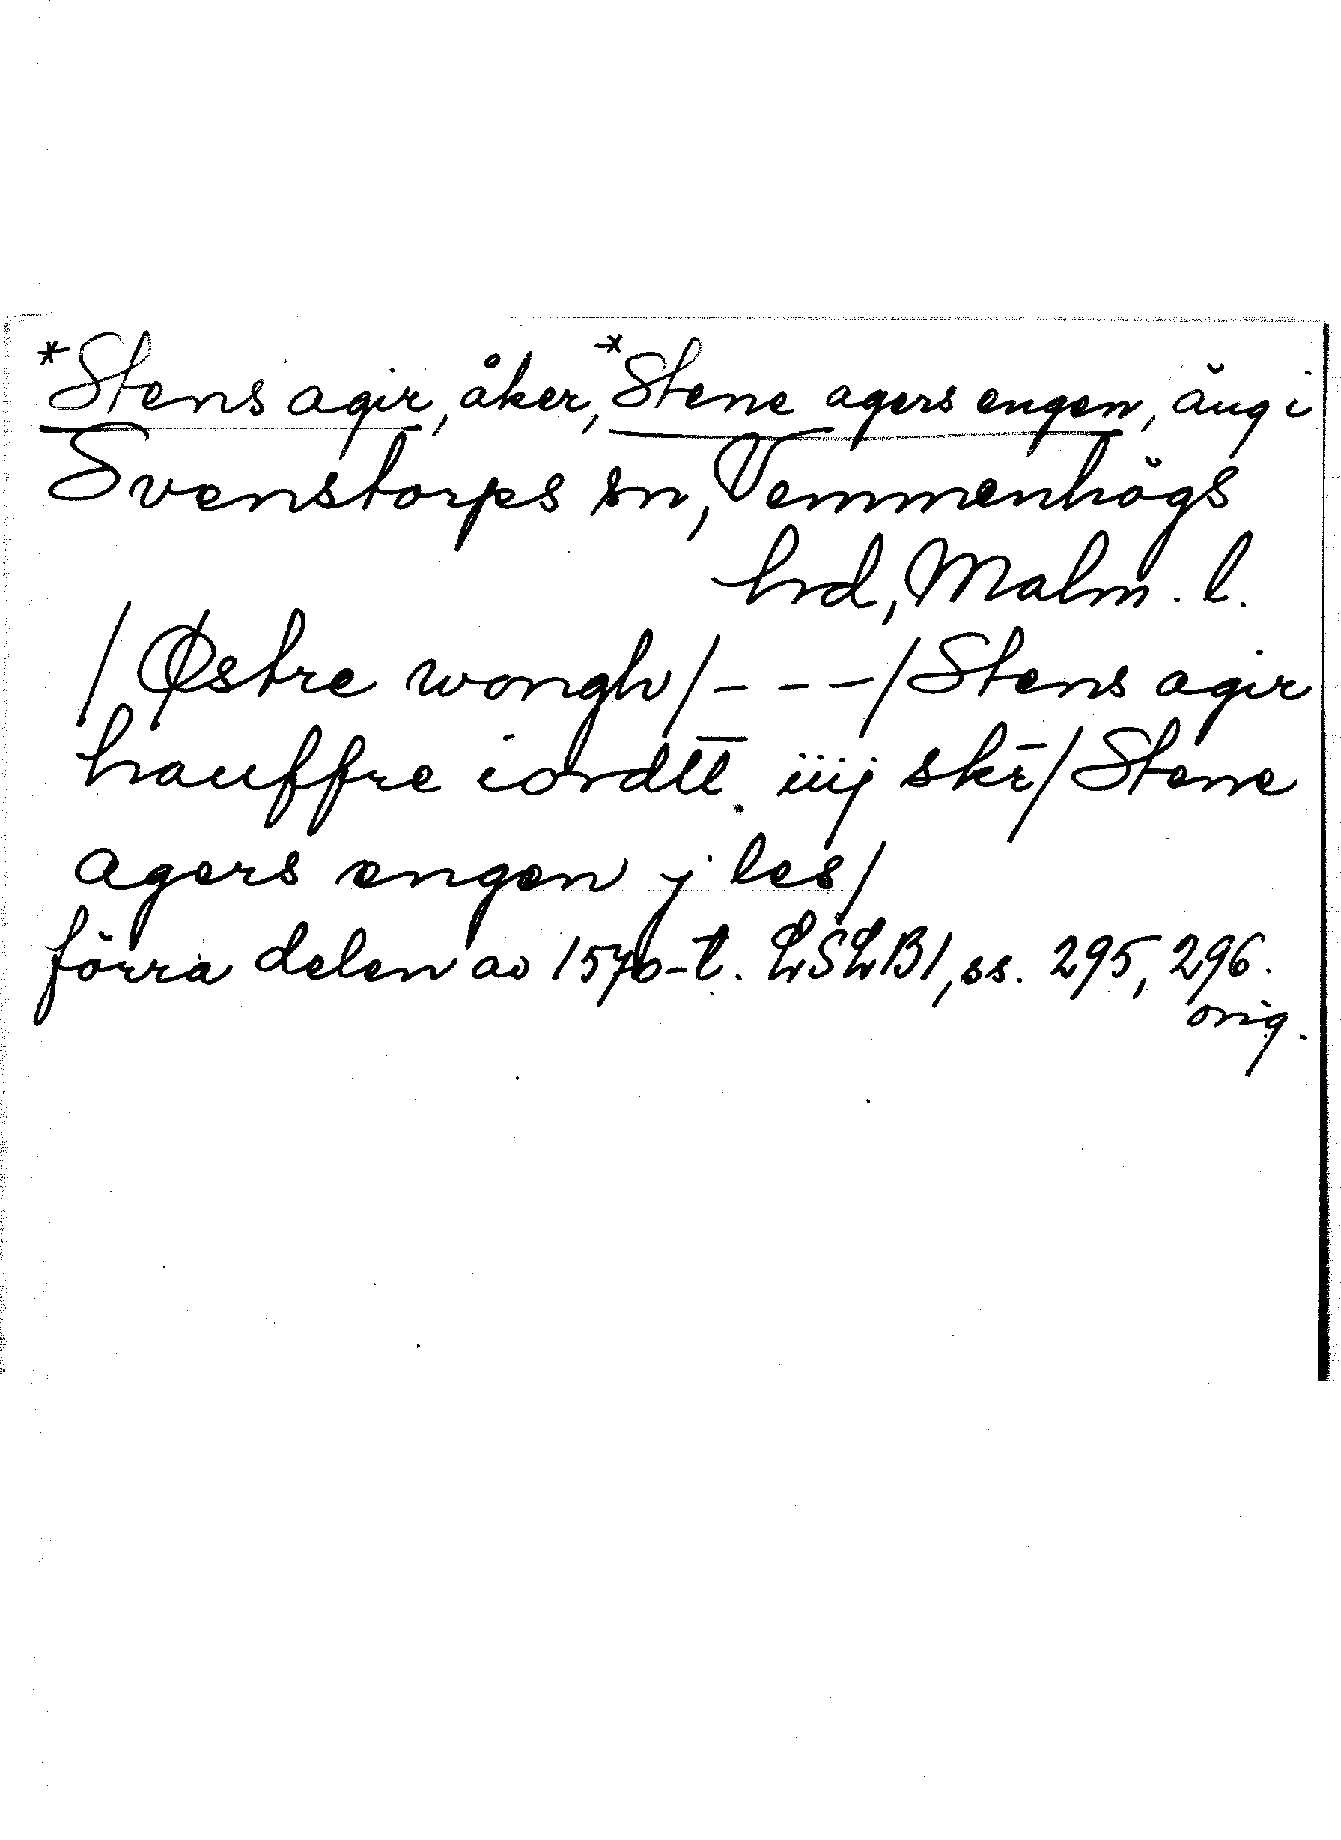 *Stens agir, åker, *Stene agers engen, äng i
Svenstorps sn, Vemmenhögs
hrd, Malm. l.
/Østre wongh/---/Stens agir
hauffre iordtt iiij skr̄/Stene
agers engen j les/
förra delen av 1570-t. LSLB1, ss. 295, 296.
orig.